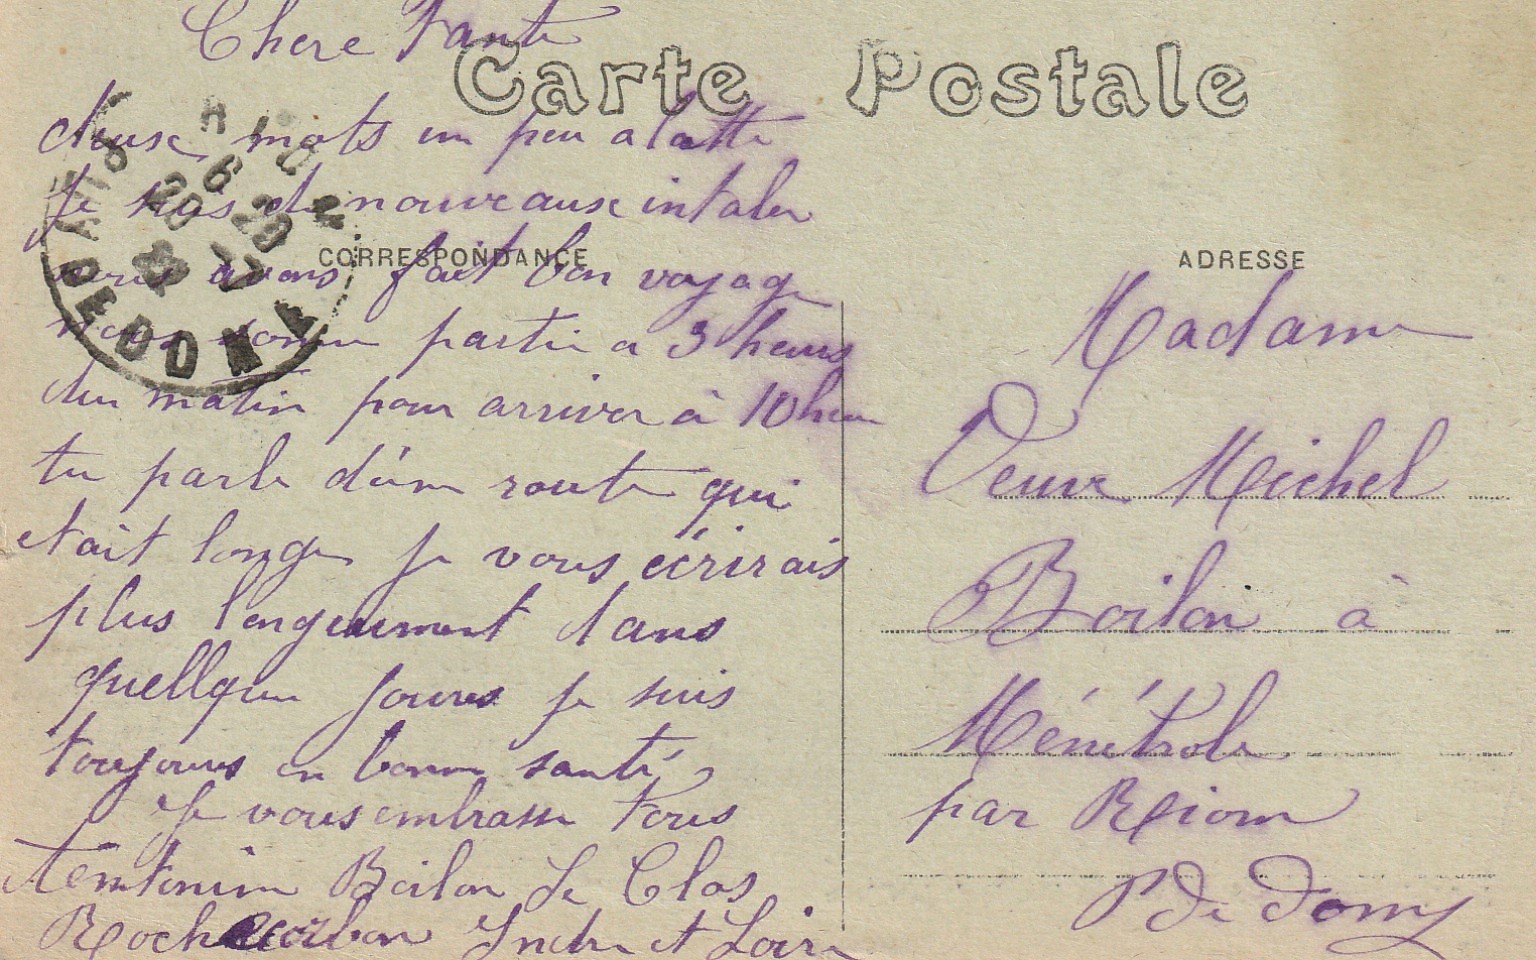 Chere Tante
Carte Postale
deux mots un peu a la atte
Je suis de nouveaux intaler
CORRESPONDANCE
ADRESSE
nous avons fait bon voyage
nous somme partie a 3 heurs
du matin pour arriver à 10 heur
tu parle d'une route qui
etait longe je vous écrirais
plus longeument dans
quellque jours je suis
toujours en bonne santé
Je vous embrasse tous
Antonin Boilon Le Clos
Rochecorbon Indre et Loire
Madame
Veuve Michel
Boilon à
Ménétrole
par Riom
P de Dome
RIOM
6 20
20 -7
22
PUY DE DOME